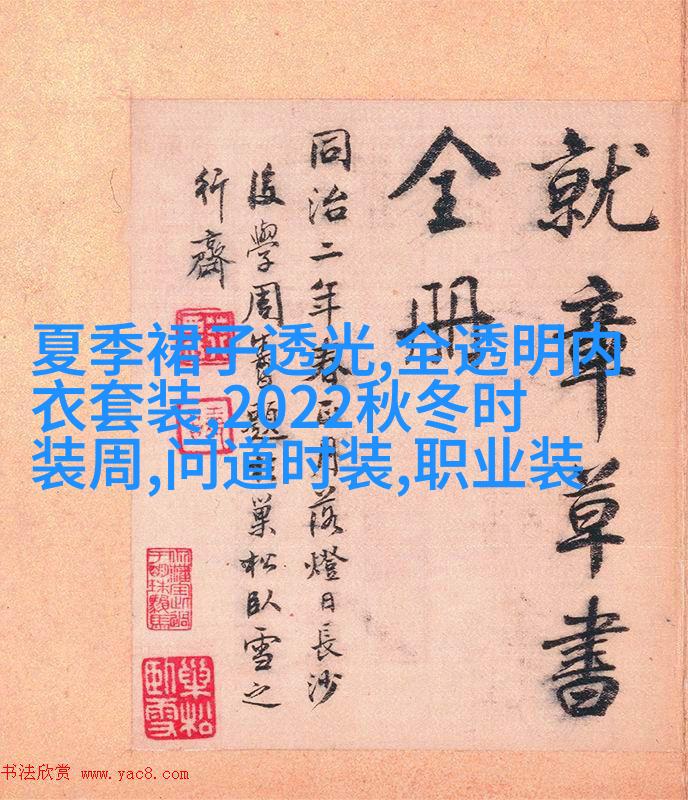 就章草書
全册
同治二年春正月落燈日長沙
後學周題巢松臥雪之
行齋
巢松
臥雪
夏季裙子透光,全透明内
衣套装,2022秋冬时
装周,问道时装,职业装
书法欣赏 www.yac8.com